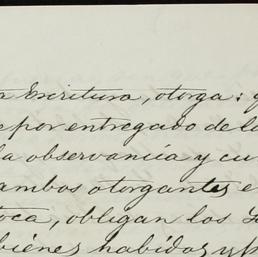 a Escritura, otorga: q
por entregado de lo
la observancia y cu
ambos otorgantes e
toca, obligan los
bienes habidos y p